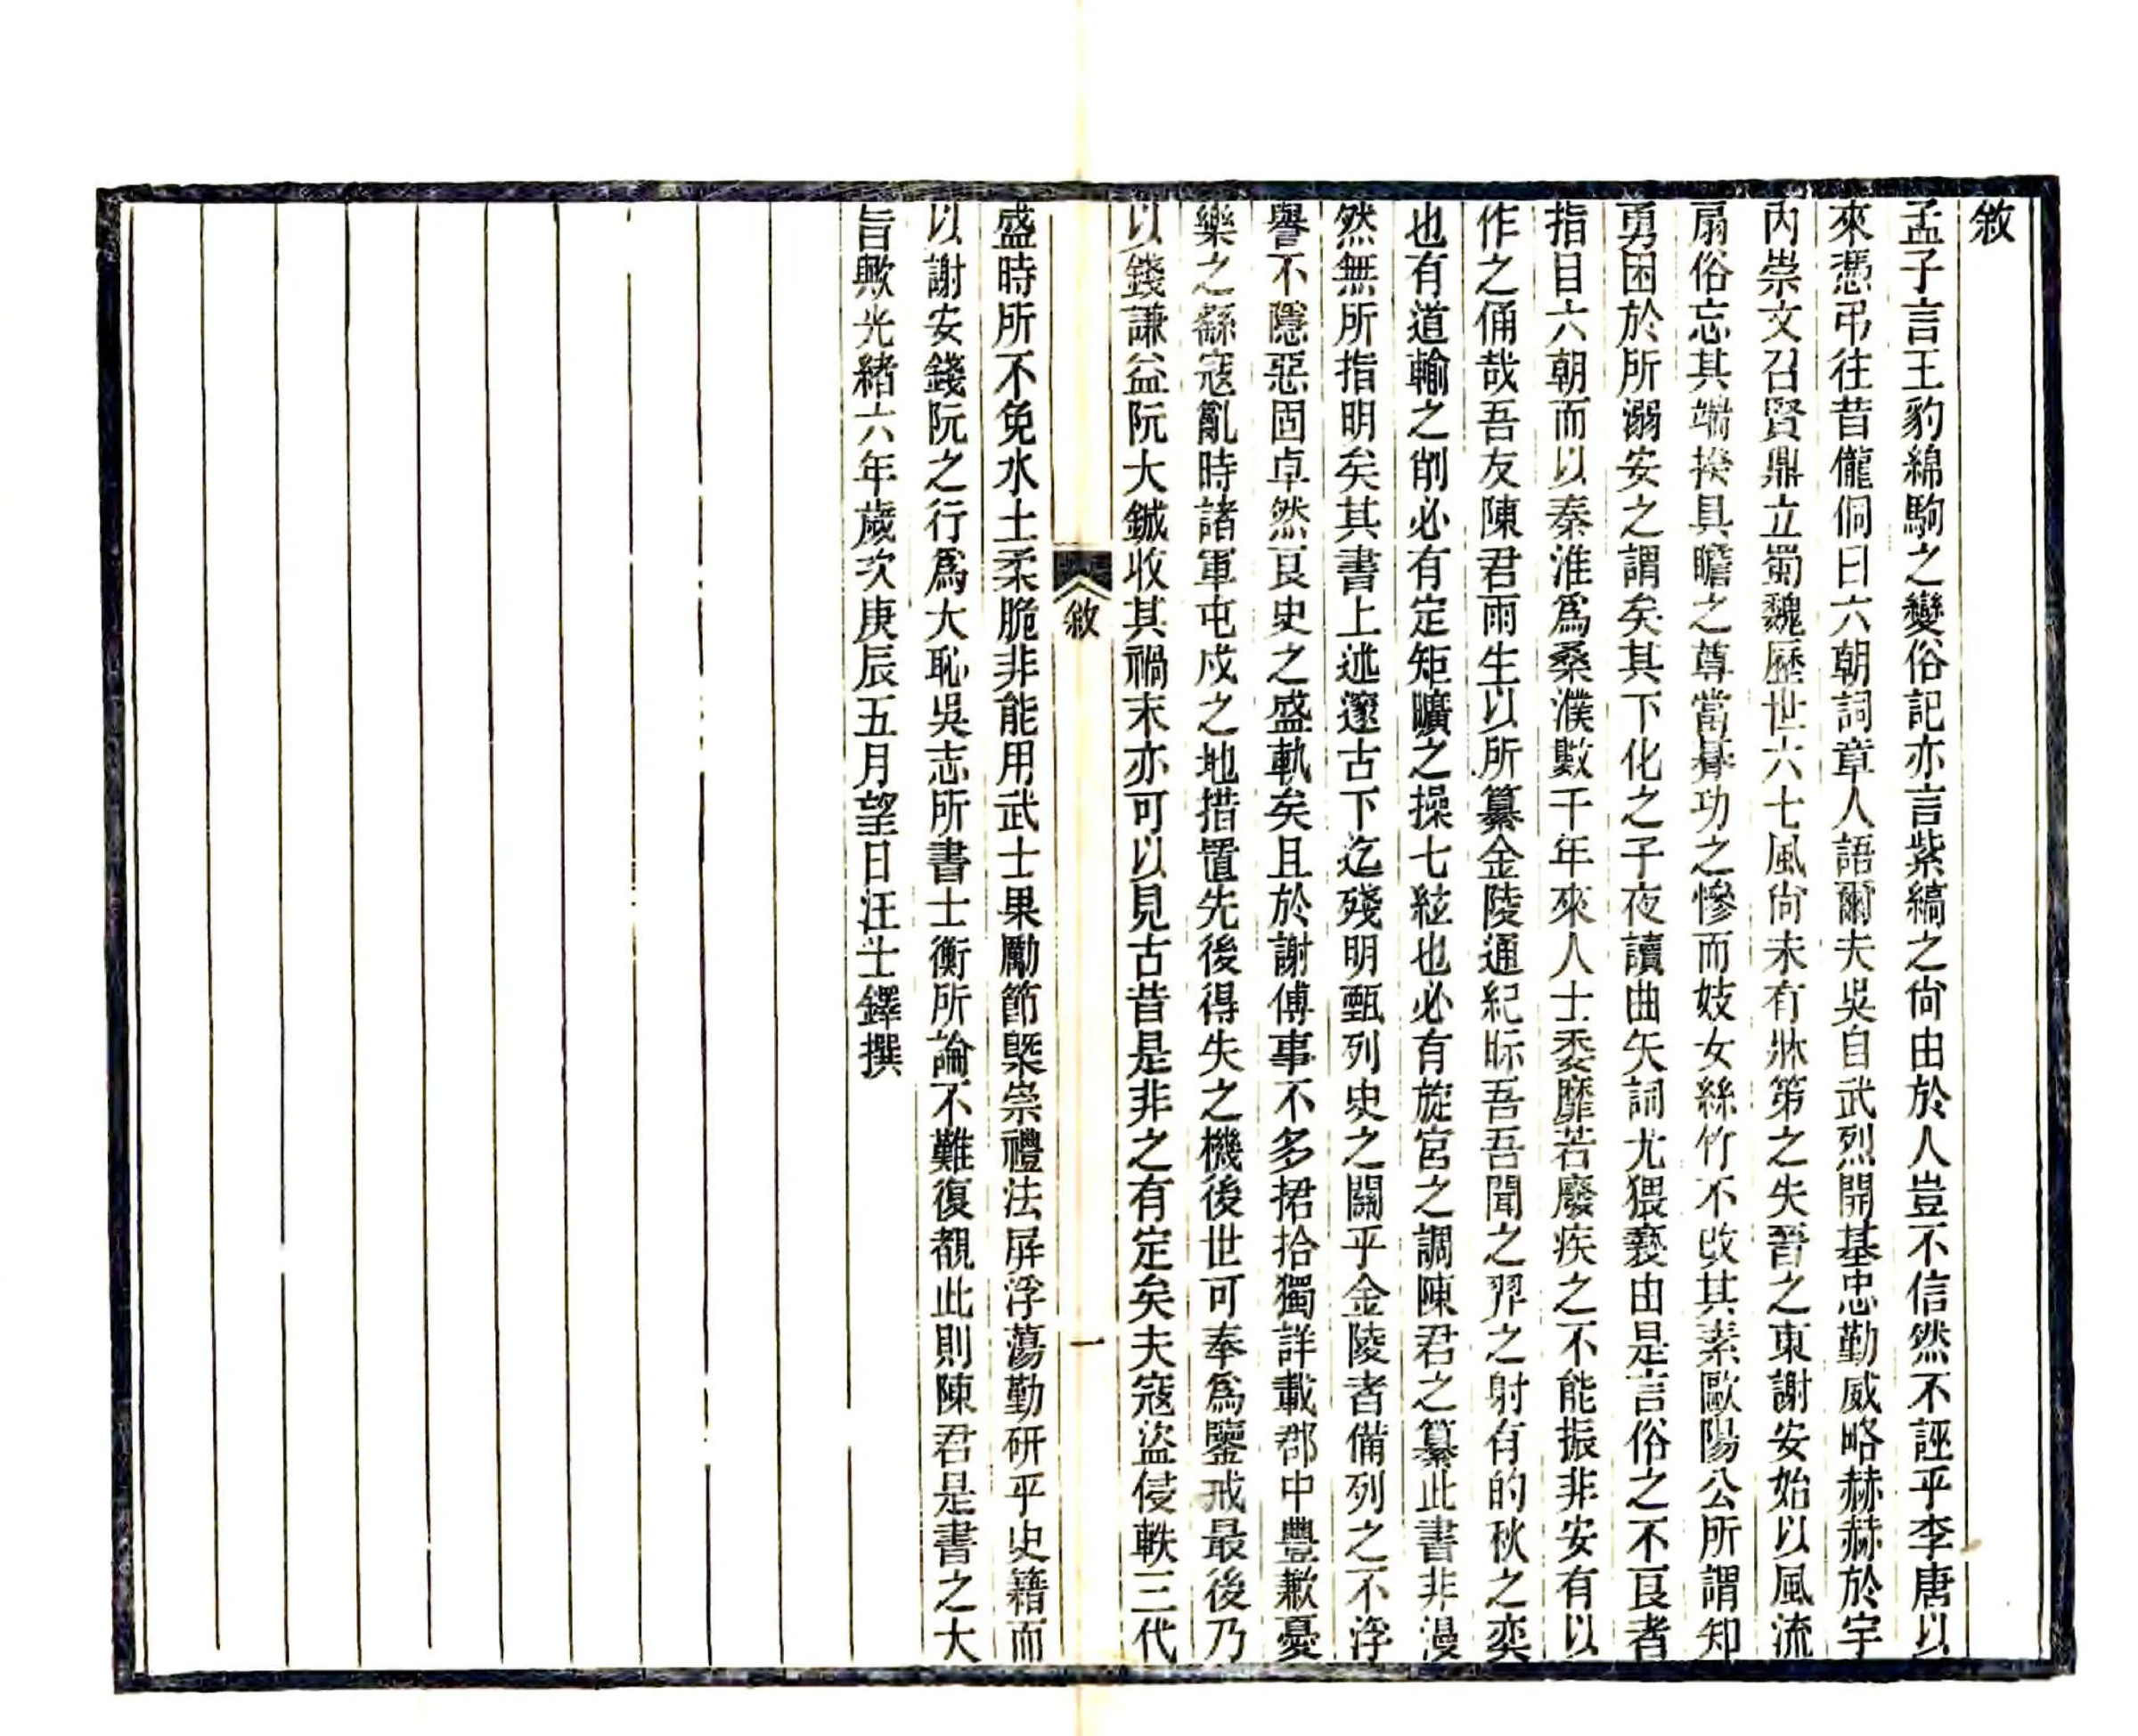 敘
孟子言王豹綿駒之變俗記亦言紫縞之尙由於人豈不信然不誣乎李唐以
來憑弔往昔儱侗曰六朝詞章人語爾夫吳自武烈開基忠勤威略赫赫於宇
內崇文召賢鼎立蜀魏歷世六七風尙未有牀笫之失晉之東謝安始以風流
扇俗忘其端揆具瞻之尊當朞功之慘而妓女絲竹不改其素歐陽公所謂知
勇困於所溺安之謂矣其下化之子夜讀曲矢詞尤猥褻由是言俗之不良者
指目六朝而以秦淮爲桑濮數千年來人士委靡若廢疾之不能振非安有以
作之俑哉吾友陳君雨生以所纂金陵通紀眎吾吾聞之羿之射有的秋之奕
也有道輸之削必有定矩曠之操七絃也必有旋宮之調陳君之纂此書非漫
然無所指明矣其書上述邃古下迄殘明甄列史之關乎金陵者備列之不浮
譽不隱惡固卓然良史之盛軌矣且於謝傅事不多捃拾獨詳載郡中豐歉憂
樂之繇寇亂時諸軍屯戍之地措置先後得失之機後世可奉爲鑒戒最後乃
以錢謙益阮大鋮收其禍末亦可以見古昔是非之有定矣夫寇盜侵軼三代
敘
一
盛時所不免水土柔脆非能用武士果勵節槩崇禮法屏浮蕩勤研乎史籍而
以謝安錢阮之行爲大恥吳志所書士衡所論不難復覩此則陳君是書之大
旨歟光緒六年歲次庚辰五月望日汪士鐸撰